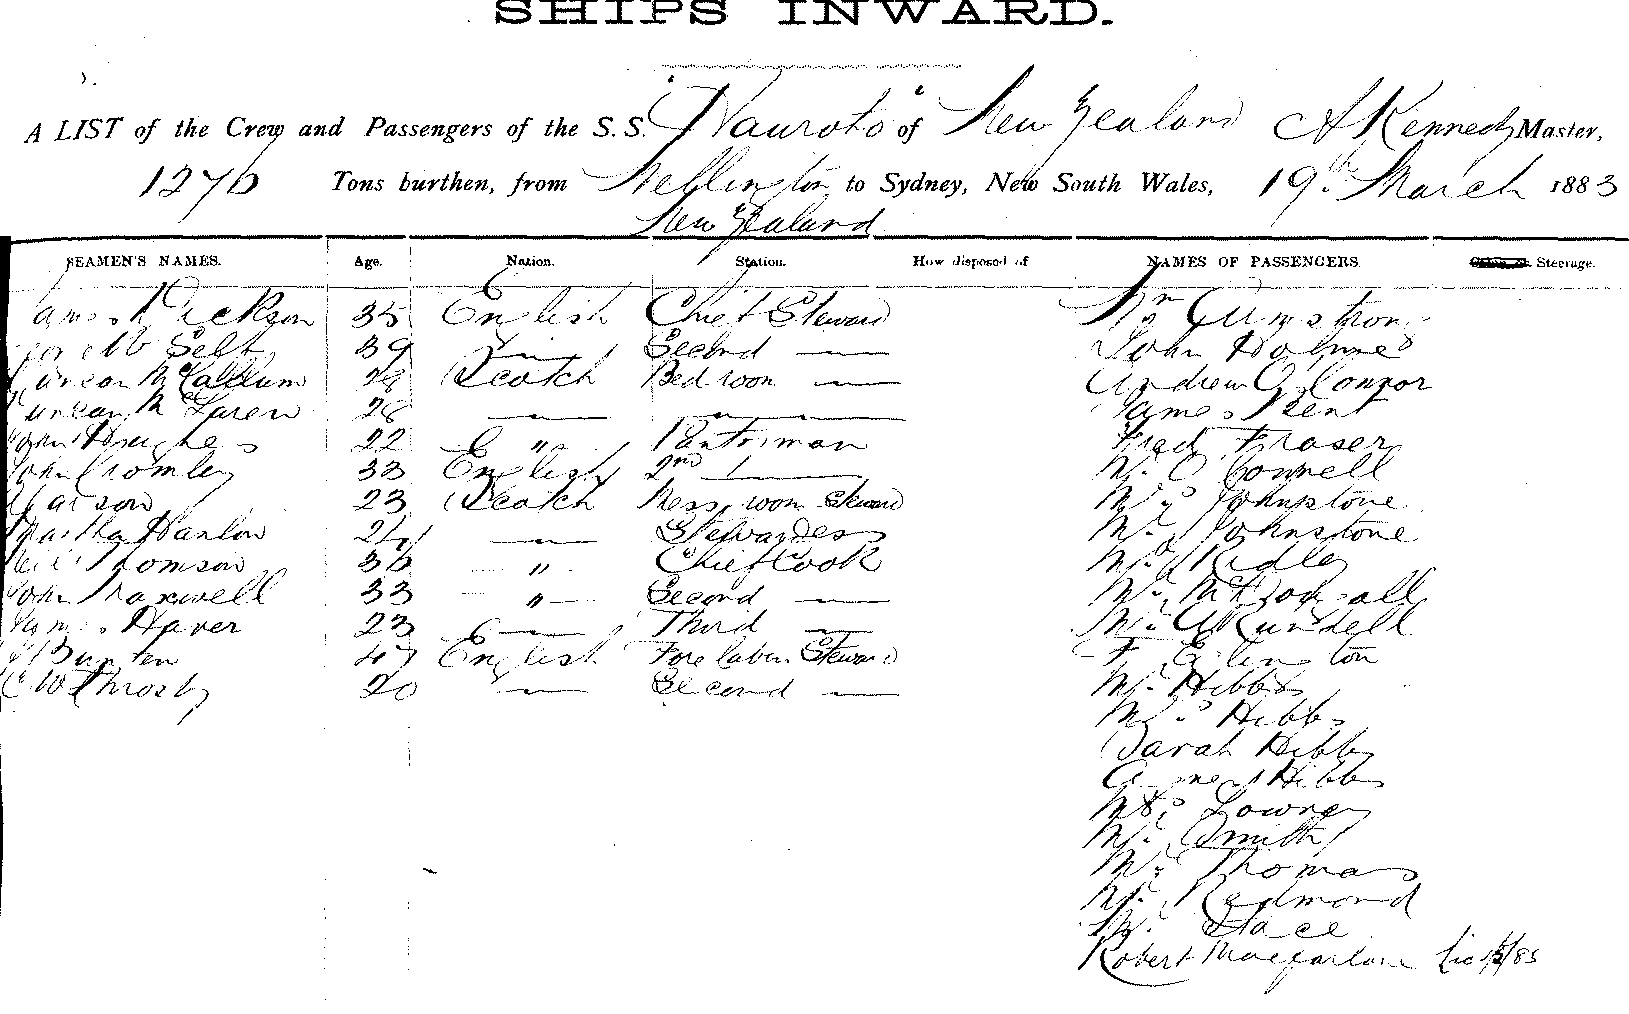 SHIPS INWARD.
A LIST of the Crew and Passengers of the S.S. "Hauroto" of New Zealand A Kennedy Master,
1276 Tons burthen, from Wellington to Sydney, New South Wales, 19th March 1883
New Zealand
SEAMEN'S NAMES. Age. Nation. Station. How disposed of NAMES OF PASSENGERS. Steerage.
James Dickson 35 English Chief Steward Mr Armstrong
39 Second — John Holmes
Duncan McCallum 28 Scotch Bed room — Andrew O'Connor
Duncan McLaren 28 — " — — " — " — James Kent
John Hughes 22 " Pantryman Fred. Fraser
John Cromley 33 English 2nd — Mr. O'Connell
23 Scotch Mess room Steward Mrs Johnstone
Martha Hanlon 24 — " — Stewardess Mr. Johnstone
Neil Thomson 36 — " Chief Cook Mr. Ridley
John Maxwell 33 — " — Second — Mr. McDougall
James Haver 23 — " — Third — Mr. Rundell
Bunten 47 English Fore Cabin Steward
C W Throsby 20 — " — Second — Mr. Hibbs
Mrs Hibbs
Sarah Hibbs
Hibbs
Mrs Lowney
Mr. Smith
Mr. Thomas
Mr. Redmond
Mr. Stace
Robert Macfarlane